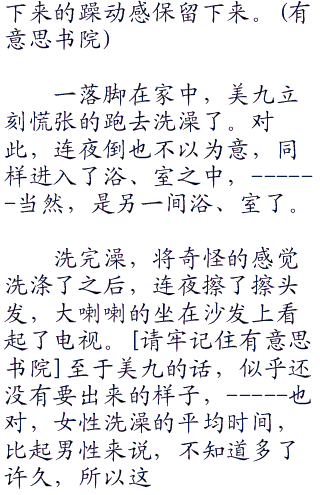 下来的躁动感保留下来。(有
意思书院)
一落脚在家中，美九立
刻慌张的跑去洗澡了。对
此，连夜倒也不以为意，同
样进入了浴、室之中，-----
-当然，是另一间浴、室了。
洗完澡，将奇怪的感觉
洗涤了之后，连夜擦了擦头
发，大喇喇的坐在沙发上看
起了电视。[请牢记住有意思
书院]至于美九的话，似乎还
没有要出来的样子，-----也
对，女性洗澡的平均时间，
比起男性来说，不知道多了
许久，所以这